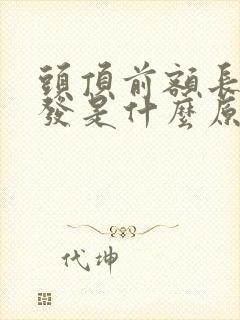 頭頂前額長
發是什麼原
代坤